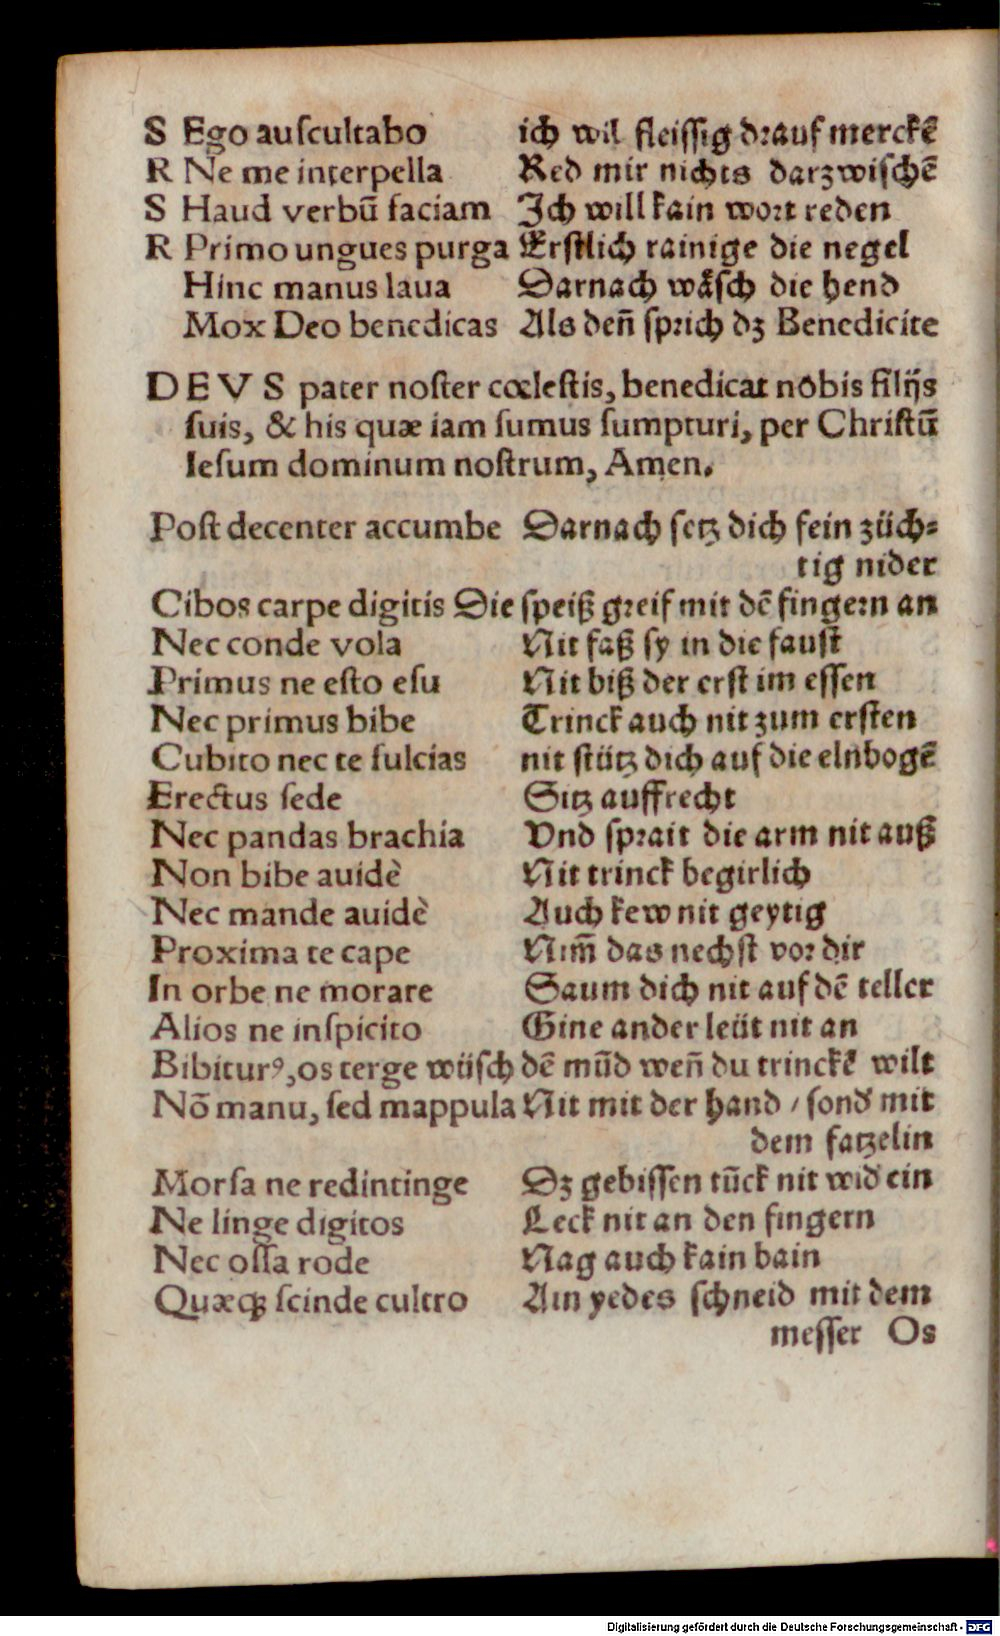 S Ego auſcultabo ich wil fleiſſig drauf merckẽ
R Ne me interpella Red mir nichts darzwiſchẽ
S Haud verbũ faciam Ich will kain wort reden
R Primo ungues purga Erſtlich rainige die negel
Hinc manus laua Darnach wäſch die hend
Mox Deo benedicas Als deñ ſprich dz Benedicite
DEVS pater noſter cœleſtis, benedicat nobis filijs
ſuis, & his quæ iam ſumus ſumpturi, per Chriſtũ
Ieſum dominum noſtrum, Amen.
Poſt decenter accumbe Darnach ſetz dich fein züch⸗
tig nider
Cibos carpe digitis Die ſpeiß greif mit dẽ fingern an
Nec conde vola Nit faß ſy in die fauſt
Primus ne eſto eſu Nit biß der erſt im eſſen
Nec primus bibe Trinck auch nit zum erſten
Cubito nec te fulcias nit ſtütz dich auf die elnbogẽ
Erectus ſede Sitz auffrecht
Nec pandas brachia Vnd ſprait die arm nit auß
Non bibe auidè Nit trinck begirlich
Nec mande auidè Auch kew nit geytig
Proxima te cape Nim̃ das nechſt vor dir
In orbe ne morare Saum dich nit auf dẽ teller
Alios ne inſpicito Gine ander leüt nit an
Bibiturꝰ, os terge wüſch dẽ mũd weñ du trinckẽ wilt
Nõ manu, ſed mappula Nit mit der hand / ſond' mit
dem fatzelin
Morſa ne redintinge Dz gebiſſen tũck nit wid' ein
Ne linge digitos Leck nit an den fingern
Nec oſſa rode Nag auch kain bain
Quæqꝫ ſcinde cultro Ain yedes ſchneid mit dem
meſſer Os
Digitalisierung gefördert durch die Deutsche Forschungsgemeinschaft - DFG